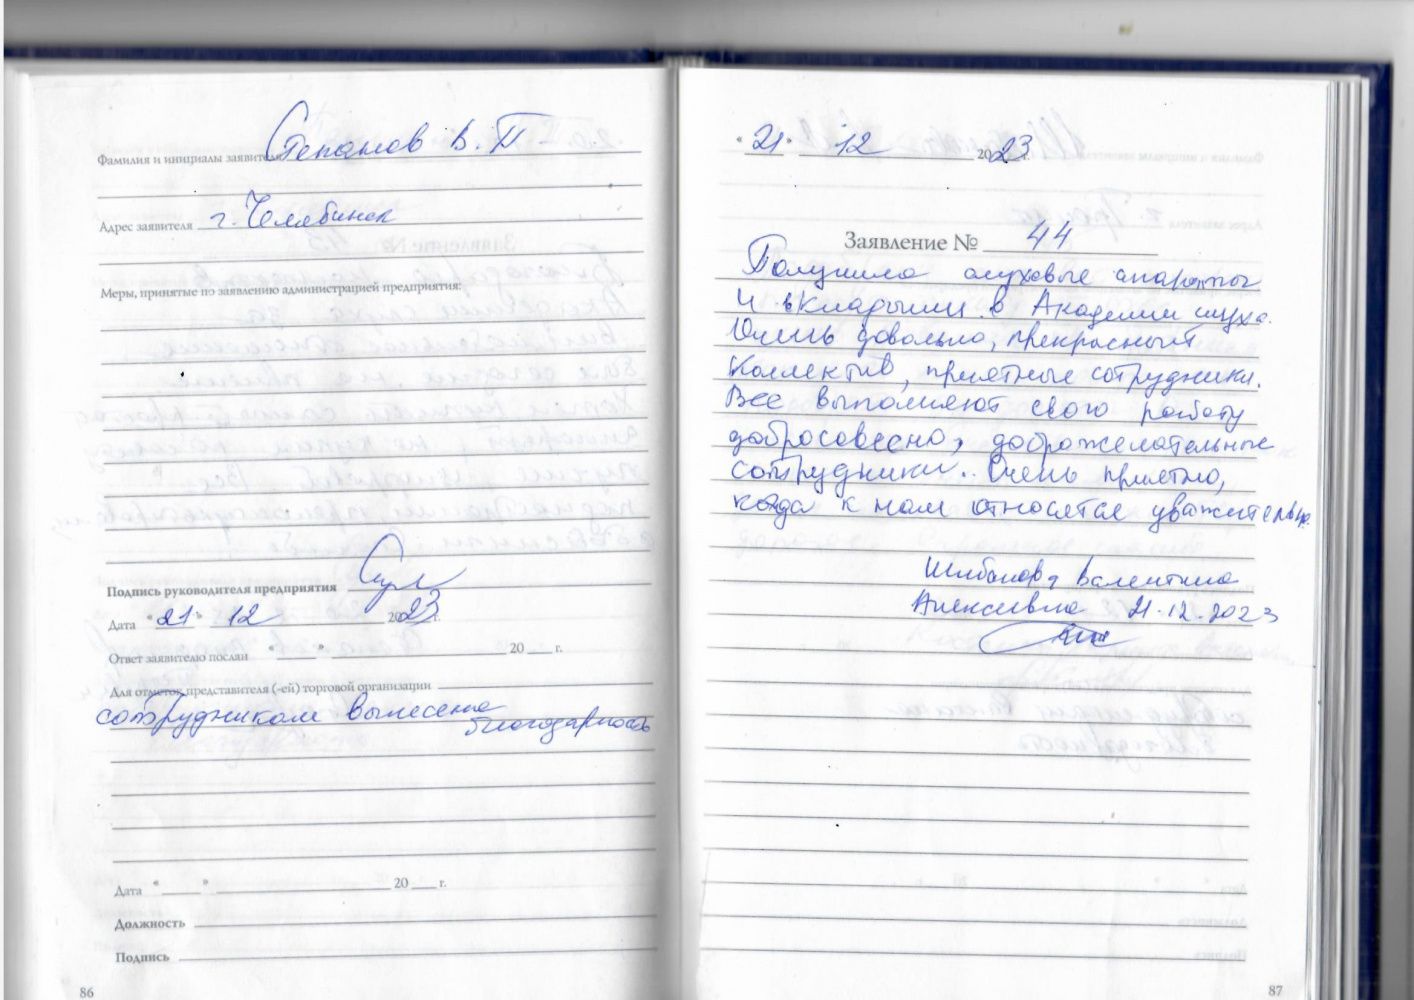 Фамилия и инициалы заявителя Степанов В. П
Адрес заявителя г. Челябинск
Меры, принятые по заявлению администрацией предприятия:
Подпись руководителя предприятия
Дата "21" 12 2023 г.
Ответ заявителю послан " " 20 г.
Для отметок представителя (-ей) торговой организации
сотрудникам вынесена
благодарность
Дата " " 20 г.
Должность
Подпись
86
"21" 12 2023 г.
Заявление № 44
Получила слуховые апараты
и вкладыши в Академии слуха.
Очень довольна, прекрасный
коллектив, приятные сотрудники.
Все выполняют свою работу
добросовесно, доброжелательные
сотрудники.. Очень приятно,
когда к нам относятся уважительно.
Шибанова Валентина
Алексеевна 21.12.2023
87